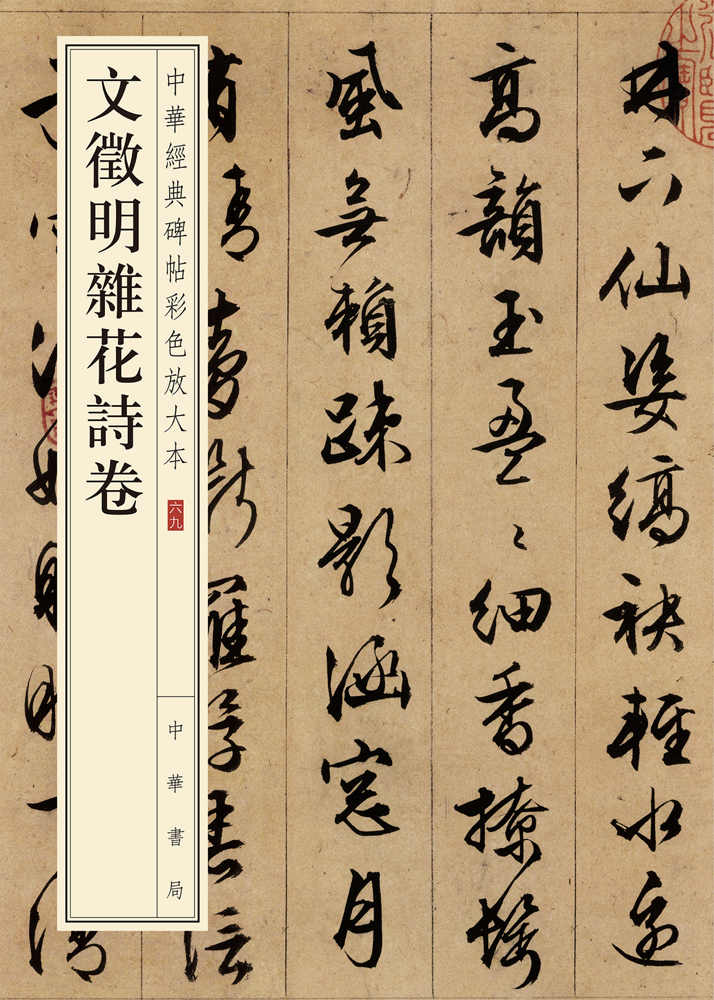 文徵明雜花詩卷
中華經典碑帖彩色放大本
六九
中華書局
林下仙姿縞袂輕水邊
高韻玉盈〻細香撩鬢
風無賴疎影涵窓月
有情夢斷羅浮春信